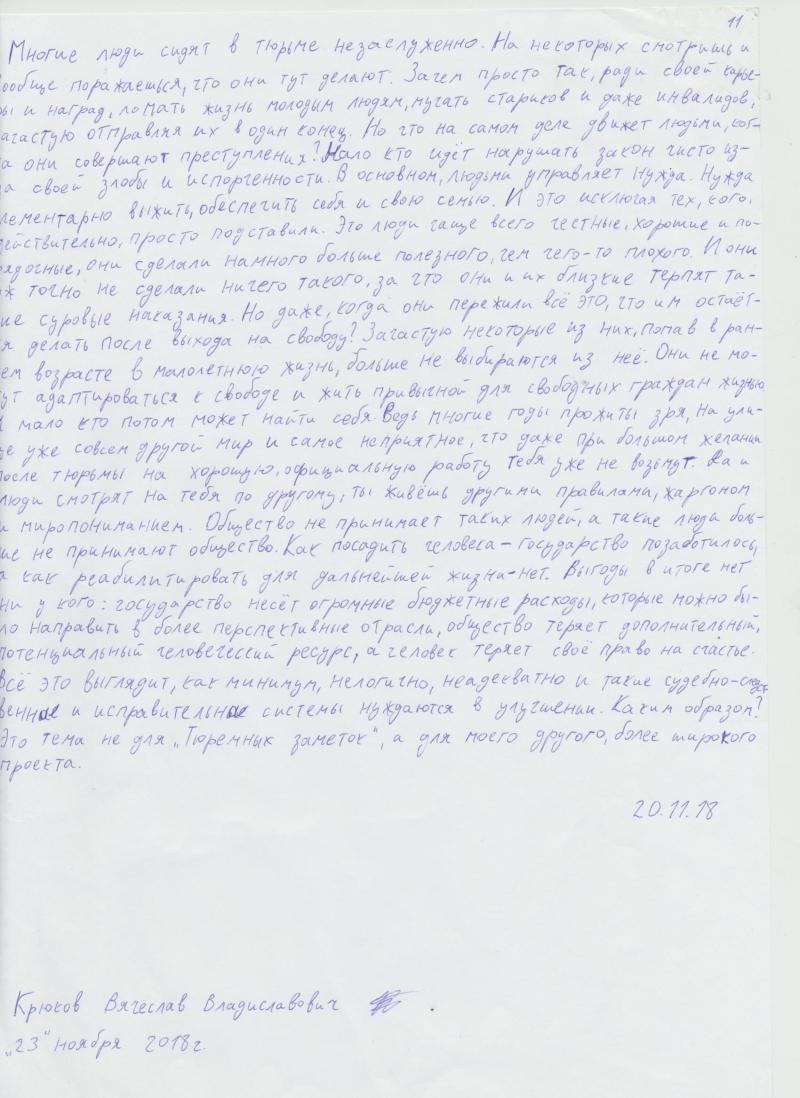 11
Многие люди сидят в тюрьме незаслуженно. На некоторых смотришь и
вообще поражаешься, что они тут делают. Зачем просто так, ради своей карье-
ры и наград, ломать жизнь молодым людям, мучать стариков и даже инвалидов,
зачастую отправляя их в один конец. Но что на самом деле движет людьми, ког-
да они совершают преступления? Мало кто идёт нарушать закон чисто из-
за своей злобы и испорченности. В основном, людьми управляет нужда. Нужда
элементарно выжить, обеспечить себя и свою семью. И это исключая тех, кого,
действительно, просто подставили. Это люди чаще всего честные, хорошие и по-
рядочные, они сделали намного больше полезного, чем чего-то плохого. И они
уж точно не сделали ничего такого, за что они и их близкие терпят та-
кие суровые наказания. Но даже, когда они пережили всё это, что им остаёт-
ся делать после выхода на свободу? Зачастую некоторые из них, попав в ран-
нем возрасте в малолетнюю жизнь, больше не выбираются из неё. Они не мо-
гут адаптироваться к свободе и жить привычной для свободных граждан жизнью
И мало кто потом может найти себя. Ведь многие годы прожиты зря, на ули-
це уже совсем другой мир и самое неприятное, что даже при большом желании
после тюрьмы на хорошую, официальную работу тебя уже не возьмут. Да и
люди смотрят на тебя по другому, ты живёшь другими правилами, жаргоном
и миропониманием. Общество не принимает таких людей, а такие люди боль-
ше не принимают общество. Как посадить человека – государство позаботилось,
а как реабилитировать для дальнейшей жизни – нет. Выгоды в итоге нет
ни у кого: государство несёт огромные бюджетные расходы, которые можно бы-
ло направить в более перспективные отрасли, общество теряет дополнительный,
потенциальный человеческий ресурс, а человек теряет своё право на счастье.
Всё это выглядит, как минимум, нелогично, неадекватно и такие судебно-следст-
венные и исправительные системы нуждаются в улучшении. Каким образом?
Это тема не для „Тюремных заметок", а для моего другого, более широкого
проекта.
20.11.18
Крюков Вячеслав Владиславович
„23" ноября 2018г.